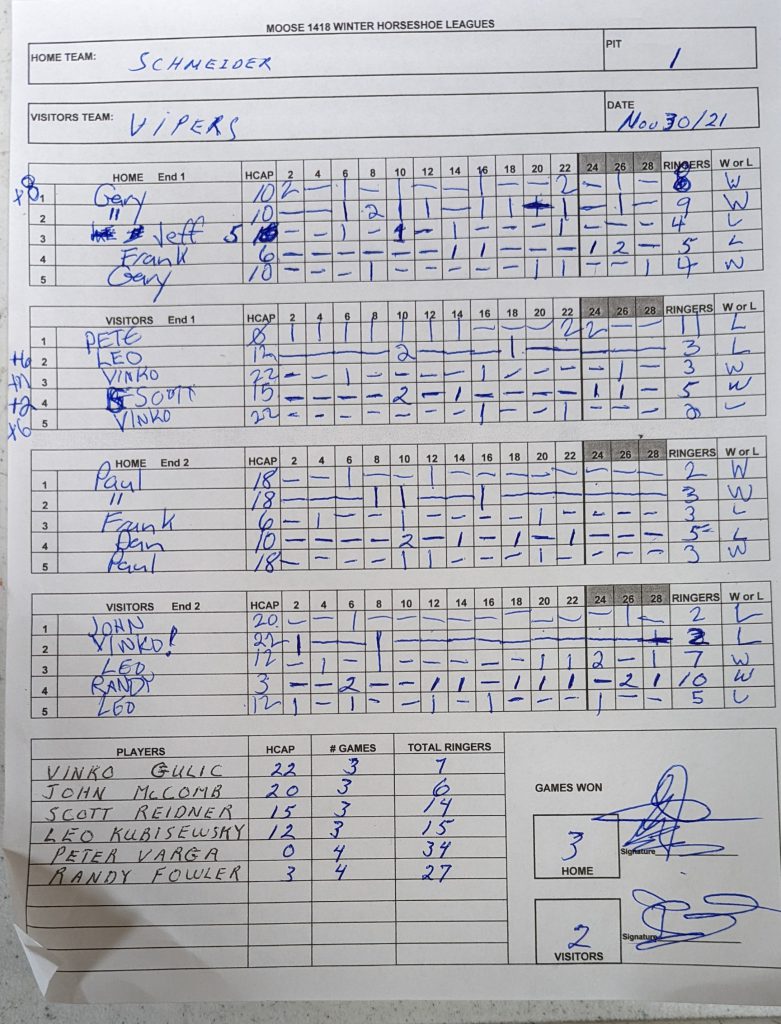 MOOSE 1418 WINTER HORSESHOE LEAGUES
HOME TEAM: SCHMEIDER PIT 1
VISITORS TEAM: VIPERS DATE Nov 30/21
HOME End 1 HCAP 2 4 6 8 10 12 14 16 18 20 22 24 26 28 RINGERS W or L
+8 1 Gary 10 2 – 1 – 1 – – 1 – – 2 – 1 – 8 W
2 " 10 – – 1 2 1 1 – 1 1 – 1 – 1 – 9 W
3 Jeff 5 – – 1 – 1 – 1 – – – 1 – – – 4 L
4 Frank 6 – – – – – – 1 1 – – – 1 2 – 5 L
5 Gary 10 – – – 1 – – – – – 1 1 – – 1 4 W
VISITORS End 1 HCAP 2 4 6 8 10 12 14 16 18 20 22 24 26 28 RINGERS W or L
1 PETE 0 1 1 1 1 1 1 1 – – 1 2 2 – – 11 L
+6 2 LEO 12 – – – – 2 – – – 1 – – – – – 3 L
3 VINKO 22 – – 1 – – – – 1 – – – – 1 – 3 W
+2 4 SCOTT 15 – – – – 2 – 1 – – – – 1 1 – 5 W
+6 5 VINKO 22 – – – – – – – 1 – – 1 – – – 2 L
HOME End 2 HCAP 2 4 6 8 10 12 14 16 18 20 22 24 26 28 RINGERS W or L
1 Paul 18 – – 1 – – 1 – – – – – – – – 2 W
2 " 18 – – – 1 1 – – 1 – – – – – – 3 W
3 Frank 6 – 1 – – 1 – – – – 1 – – – – 3 L
4 Dan 10 – – – – 2 – 1 – 1 – 1 – – – 5 L
5 Paul 18 – – – – 1 1 – – – 1 – – – – 3 W
VISITORS End 2 HCAP 2 4 6 8 10 12 14 16 18 20 22 24 26 28 RINGERS W or L
1 JOHN 20 – – 1 – – – – – – – – – 1 – 2 L
2 VINKO! 22 1 – – 1 – – – – – – – – – – 2 L
3 LEO 12 – 1 – 1 – – – – – 1 1 2 – 1 7 W
4 RANDY 3 – – 2 – – 1 1 – 1 1 1 – 2 1 10 W
5 LEO 12 1 – 1 – – 1 – 1 – – – 1 – – 5 L
PLAYERS HCAP # GAMES TOTAL RINGERS
VINKO GULIC 22 3 7
JOHN McCOMB 20 3 6
SCOTT REIDNER 15 3 14
LEO KUBISEWSKY 12 3 15
PETER VARGA 0 4 34
RANDY FOWLER 3 4 27
GAMES WON
3
HOME
Signature
2
VISITORS
Signature